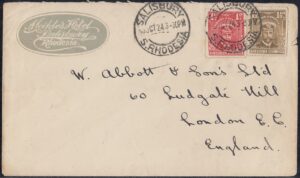 Hotel
Salisbury
Rhodesia
SALISBURY
S. RHODESIA
SALISBURY
S. RHODESIA
W. Abbott & Sons Ltd
60 Ludgate Hill
London E.C.
England.